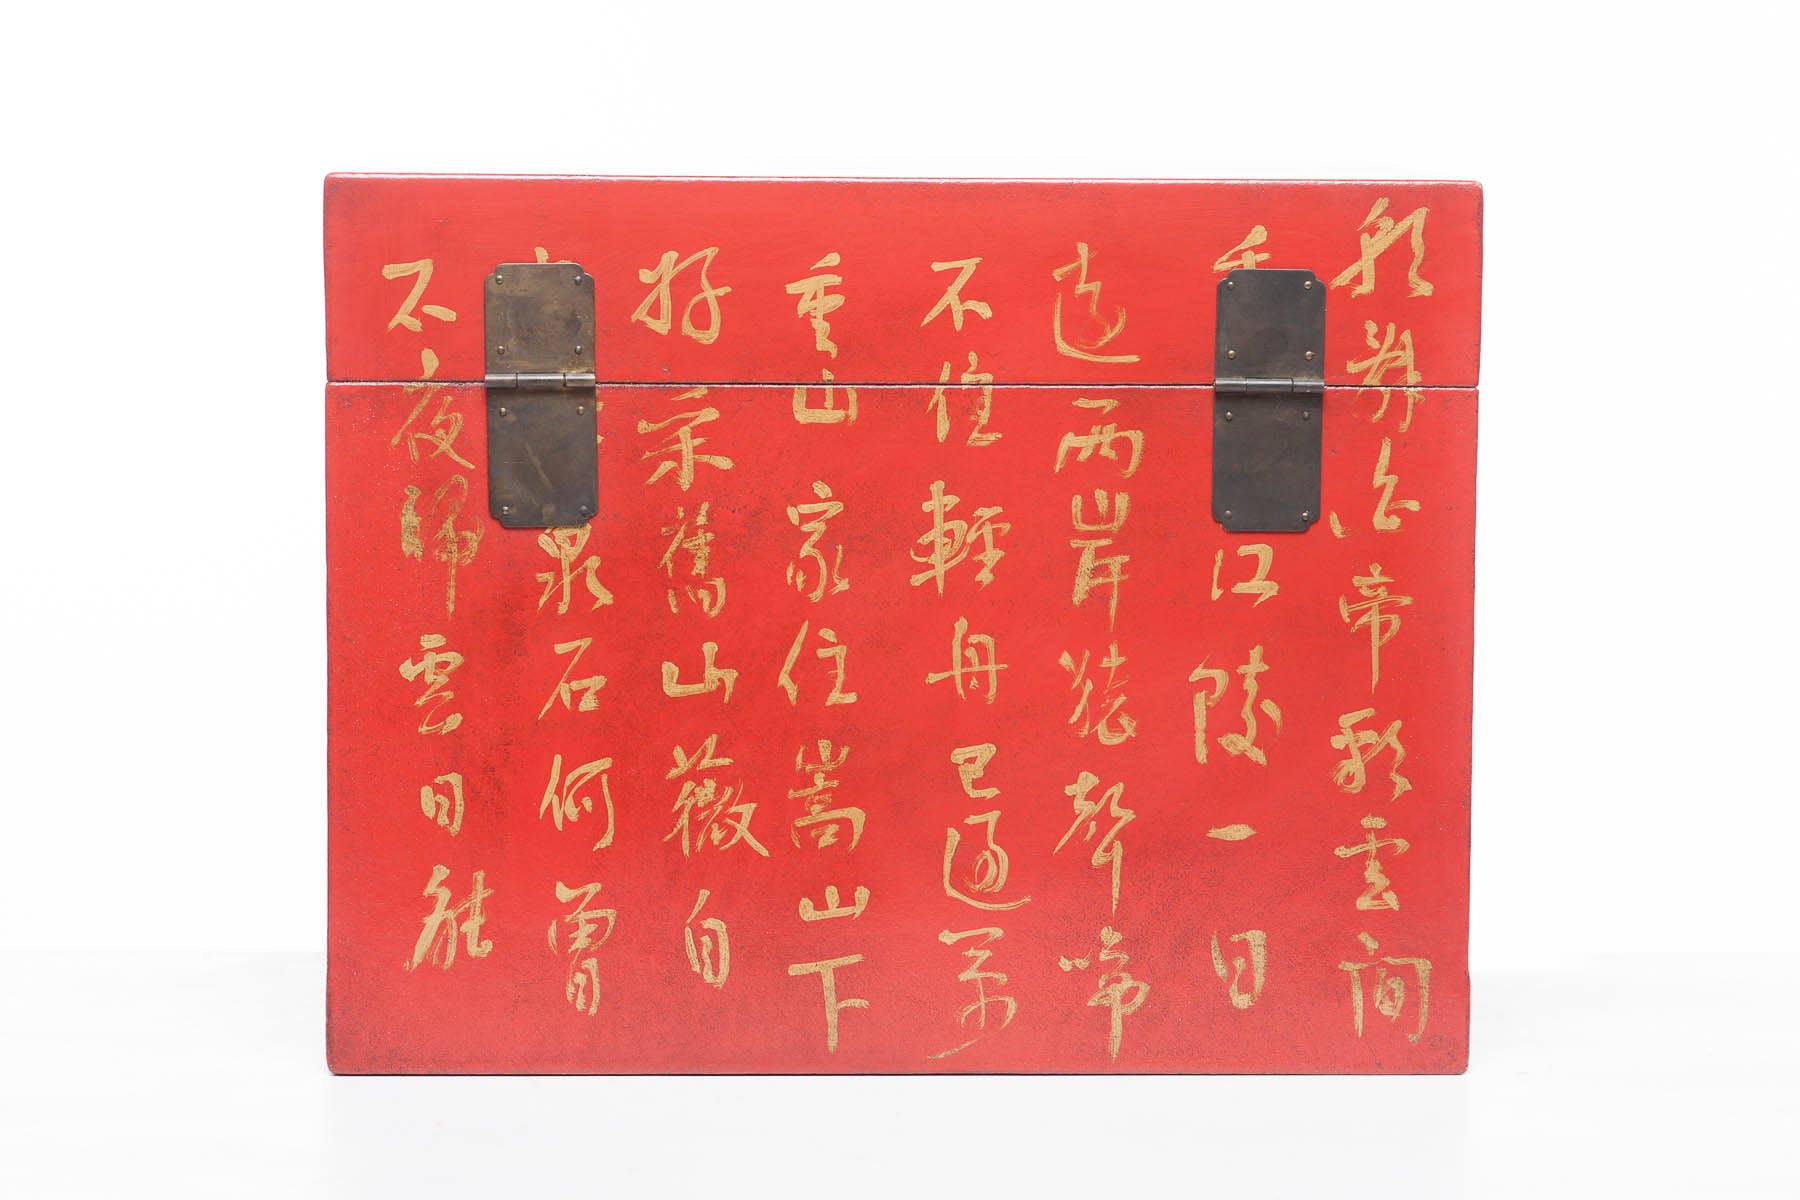 朝辭白帝彩雲間
千江陵一日
還兩岸猿聲啼
不住輕舟已過萬
重山家住嵩山下
好采舊山薇自
泉石何曾
不夜歸雲日能